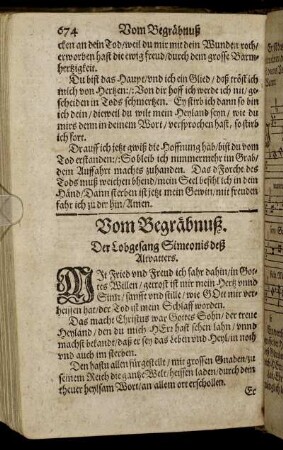 674 Vom Begräbnuß
cken an dein Tod/weil du mir mit dein Wunden roth/
erworben hast die ewig freud/durch dem grosse Barm-
hertzigkeit.
Du bist das Haupt/vnd ich ein Glied/ deß tröst ich
mich von Hertzen:/:Von dir hoff ich werde ich nit/ ge-
scheiden in Tods schmertzen. Ey stirb ich dann so bin
ich dein/ dieweil du wilt mein Heyland seyn/ wie du
mirs denn in deinem Wort/ versprochen hast/ so stirb
ich fort.
Drauff ich jetzt gwiß die Hoffnung hab/bist du vom
Tod erstanden:/:So bleib ich nimmermehr im Grab/
dem Auffahrt machts zuhanden. Das d'Forcht des
Tods muß weichen bhend/mein Seel befihl ich in dein
Händ/Dann sterben ist jetzt mein Gewin/mit freuden
fahr ich zu der hin/Amen.
Vom Begräbnuß.
Der Lobgesang Simeonis deß
Altvatters.
MIt Fried vnd Freud ich fahr dahin/in Got-
tes Willen/ getrost ist mir mein Hertz vnnd
Sinn/ sanfft vnd stille/ wie GOtt mir ver-
heissen hat/ der Tod ist mein Schlaff worden.
Das macht Christus war Gottes Sohn/ der treue
Heyland/ den du mich HErr hast sehen lahn/ vnnd
machst bekandt/daß er sey das Leben vnd Heyl/in noth
vnd auch im sterben.
Den hastu allen fürgestellt/ mit grossen Gnaden/zu
seinem Reich die gantze Welt/ heissen laden/durch dem
theuer heylsam Wort/an allem ort erschollen.
Er